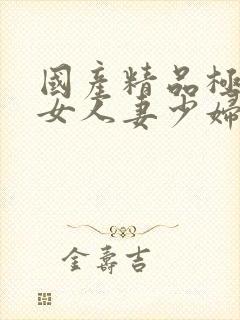 國產精品極
女人妻少婦
金壽吉